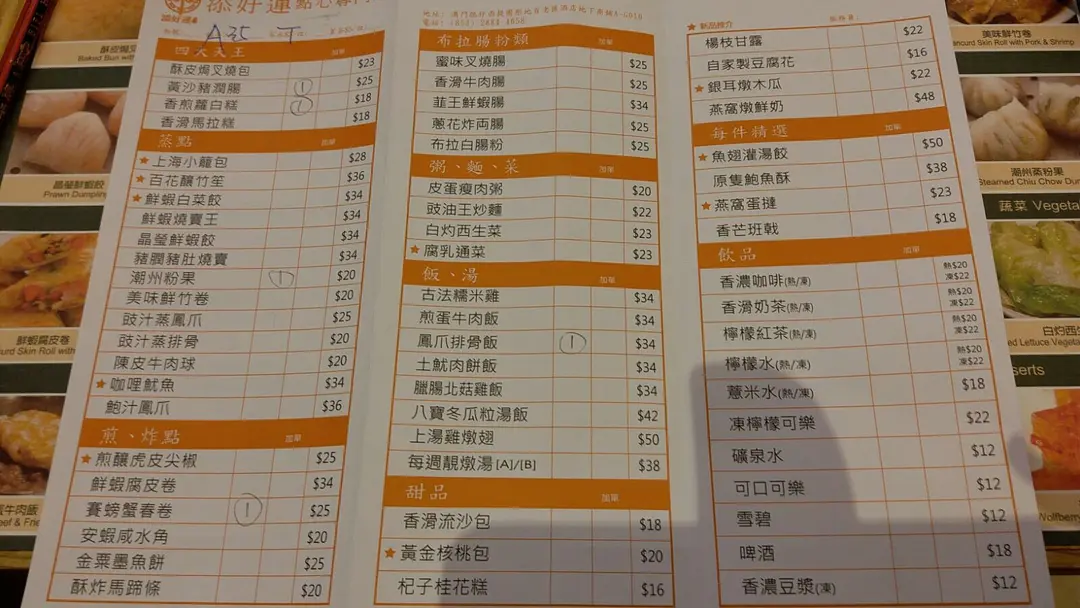 添好運 點心專門
添好運
A35
四大天王 加單
酥皮焗叉燒包 $23
黃沙豬潤腸 1 $25
香煎蘿白糕 1 $18
香滑馬拉糕 $18
蒸點 加單
★上海小籠包 $28
★百花釀竹笙 $36
★鮮蝦白菜餃 $34
鮮蝦燒賣王 $34
晶瑩鮮蝦餃 $34
豬膶豬肚燒賣 $34
潮州粉果 1 $20
美味鮮竹卷 $20
豉汁蒸鳳爪 $25
豉汁蒸排骨 $20
陳皮牛肉球 $20
★咖哩魷魚 $34
鮑汁鳳爪 $36
煎、炸點 加單
★煎釀虎皮尖椒 $25
鮮蝦腐皮卷 $34
賽螃蟹春卷 1 $25
安蝦咸水角 $20
金粟墨魚餅 $25
酥炸馬蹄條 $20
布拉腸粉類 加單
蜜味叉燒腸 $25
香滑牛肉腸 $25
韮王鮮蝦腸 $34
蔥花炸両腸 $25
布拉白腸粉 $25
粥、麵、菜 加單
皮蛋瘦肉粥 $20
豉油王炒麵 $22
白灼西生菜 $23
★腐乳通菜 $23
飯、湯 加單
古法糯米雞 $34
煎蛋牛肉飯 $34
鳳爪排骨飯 1 $34
土魷肉餅飯 $34
臘腸北菇雞飯 $34
八寶冬瓜粒湯飯 $42
上湯雞燉翅 $50
每週靚燉湯 [A]/[B] $38
甜品 加單
香滑流沙包 $18
★黃金核桃包 $20
杞子桂花糕 $16
★新品推介
楊枝甘露 $22
自家製豆腐花 $16
★銀耳燉木瓜 $22
燕窩燉鮮奶 $48
每件精選 加單
★魚翅灌湯餃 $50
原隻鮑魚酥 $38
★燕窩蛋撻 $23
香芒班戟 $18
飲品 加單
香濃咖啡(熱/凍) 熱$20 凍$22
香滑奶茶(熱/凍) 熱$20 凍$22
檸檬紅茶(熱/凍) 熱$20 凍$22
檸檬水(熱/凍) 熱$20 凍$22
薏米水(熱/凍) $18
凍檸檬可樂 $22
礦泉水 $12
可口可樂 $12
雪碧 $12
啤酒 $18
香濃豆漿(凍) $12
酥皮焗叉
Baked Bun with
晶瑩鮮蝦餃
Prawn Dumpling
鮮蝦腐皮卷
Curd Skin Roll with
蛋牛肉飯
美味鮮竹卷
Skin Roll with Pork & Shrimp
潮州蒸粉果
Steamed Chiu Chow Dum
蔬菜 Vegeta
白灼西
ed Lettuce Vegeta
serts
Wolfberry